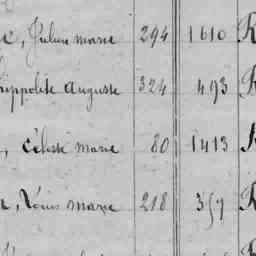 Julien marie 294 1610 R
hippolite Auguste 324 493 R
, Céleste marie 80 1413 R
, Louis marie 218 357 R